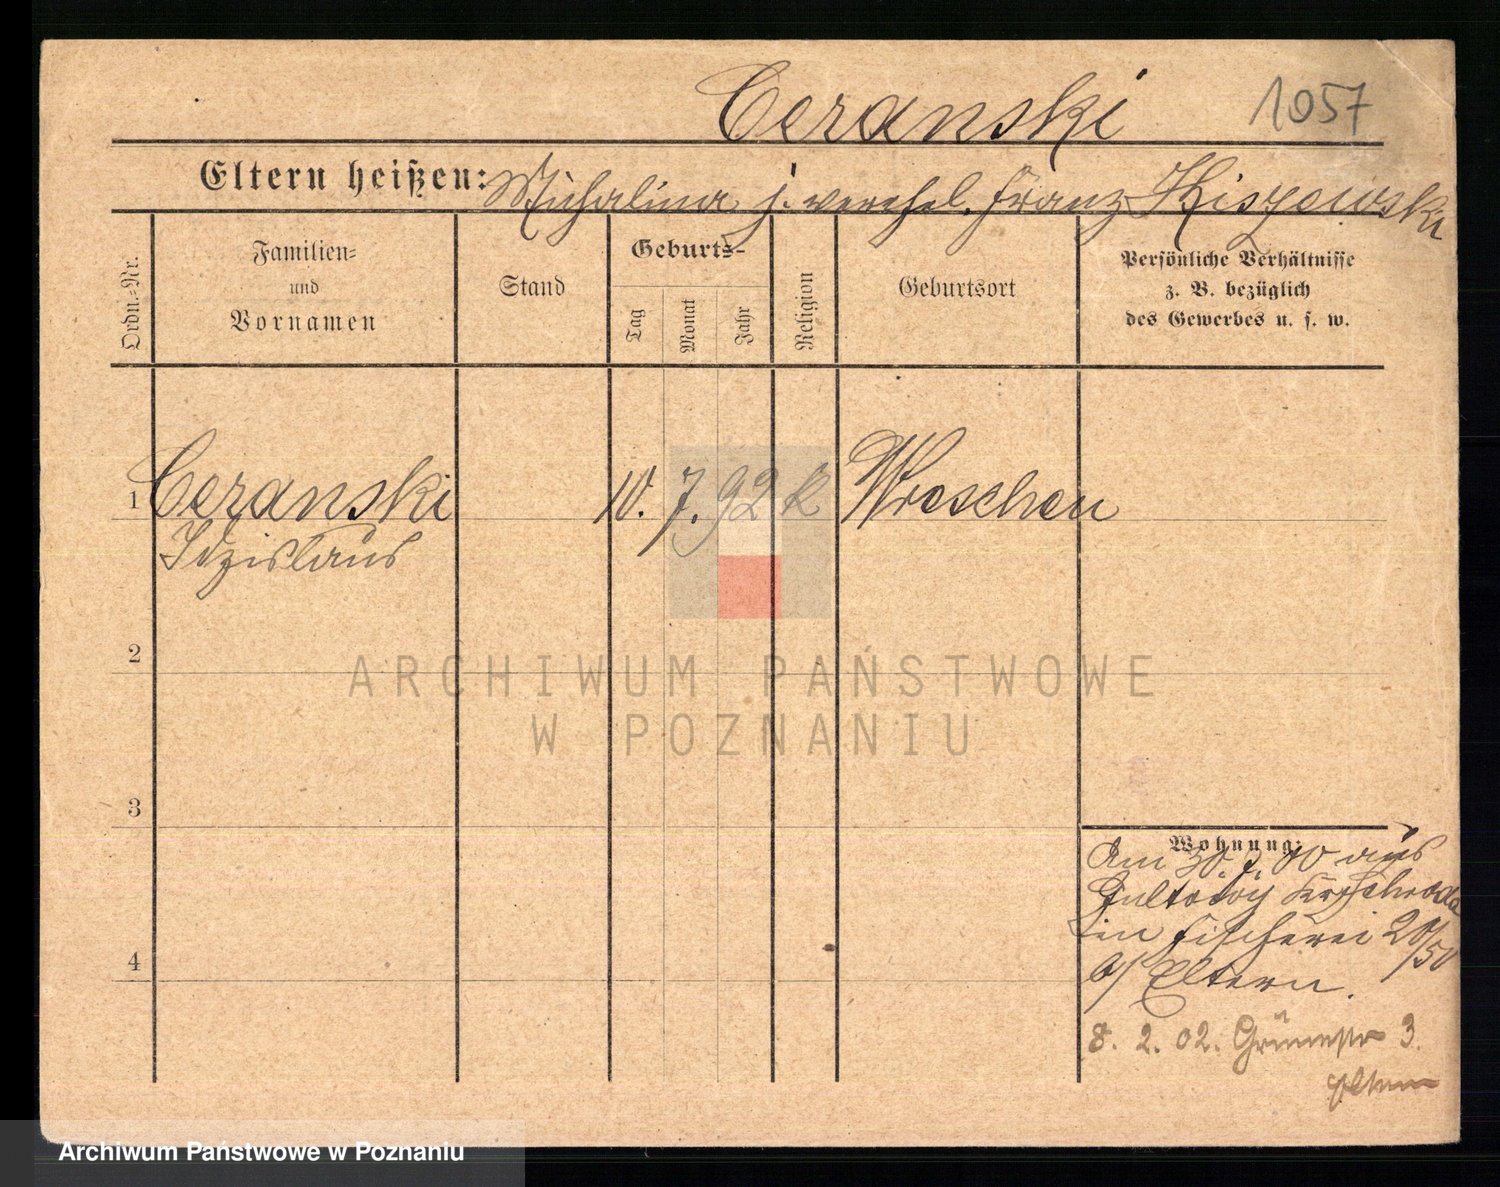 Ceranski 1057
Eltern heißen: Michalina j. verehel. Franz
Ordn.-Nr.
Familien-
und
Vornamen
Stand
Geburts-
Tag
Monat
Jahr
Religion
Geburtsort
Persönliche Verhältnisse
z. B. bezüglich
des Gewerbes u. s. w.
1 Ceranski 10. 7. 92 k Wreschen
Zdzislaus
2
ARCHIWUM PAŃSTWOWE
W POZNANIU
3
Wohnung:
Am 30. 00 aus
in Fischerei 20/50
b/ Eltern.
4
8. 2. 02. Grünestr 3.
Eltern
Archiwum Państwowe w Poznaniu